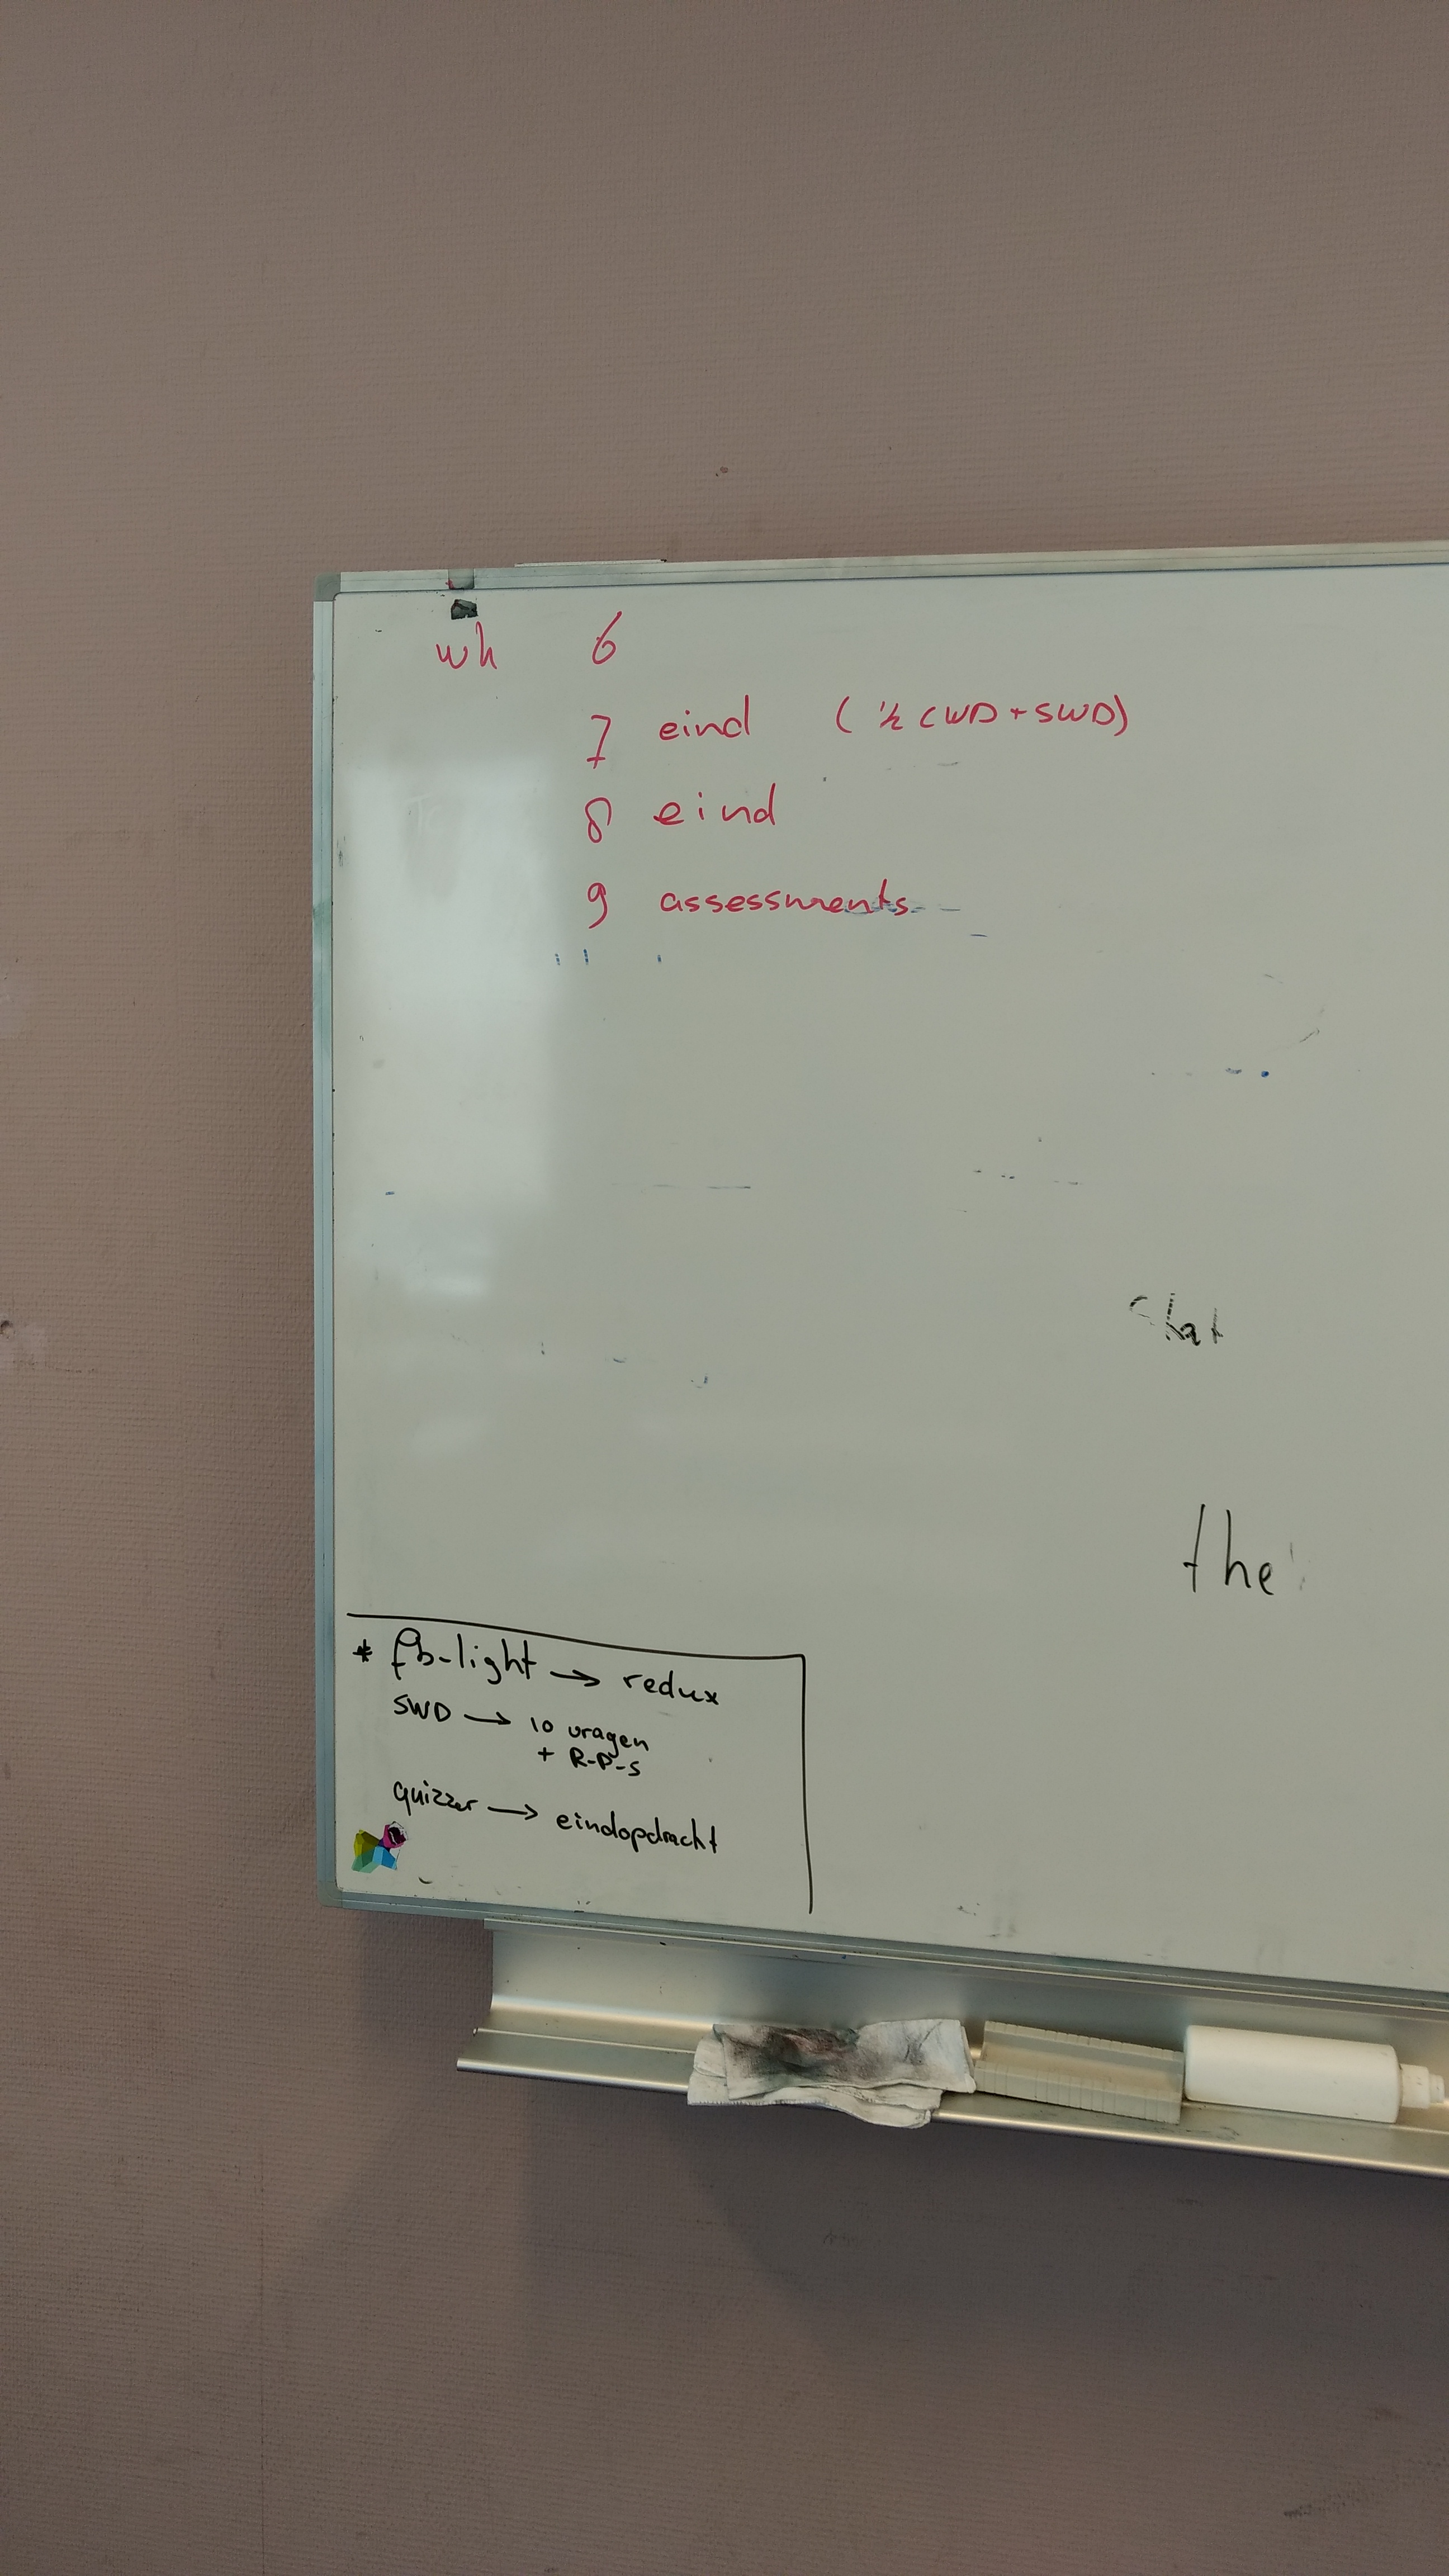 wk 6
7 eind (½ CWD + SWD)
8 eind
9 assessments
the
* fb-light → redux
SWD → 10 vragen
+ R-P-S
quizzer → eindopdracht